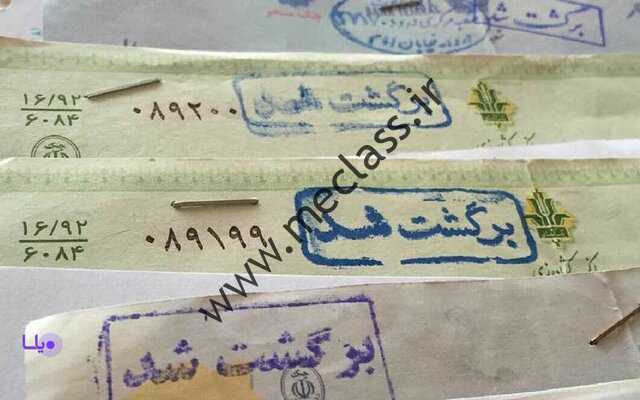 برگشت شد
۱۶/۹۲
۶۰۸۴
۰۸۹۲۰۰
برگشت شد
۱۶/۹۲
۶۰۸۴
۰۸۹۱۹۹
برگشت شد
برگشت شد
یلسا
www.meclass.ir